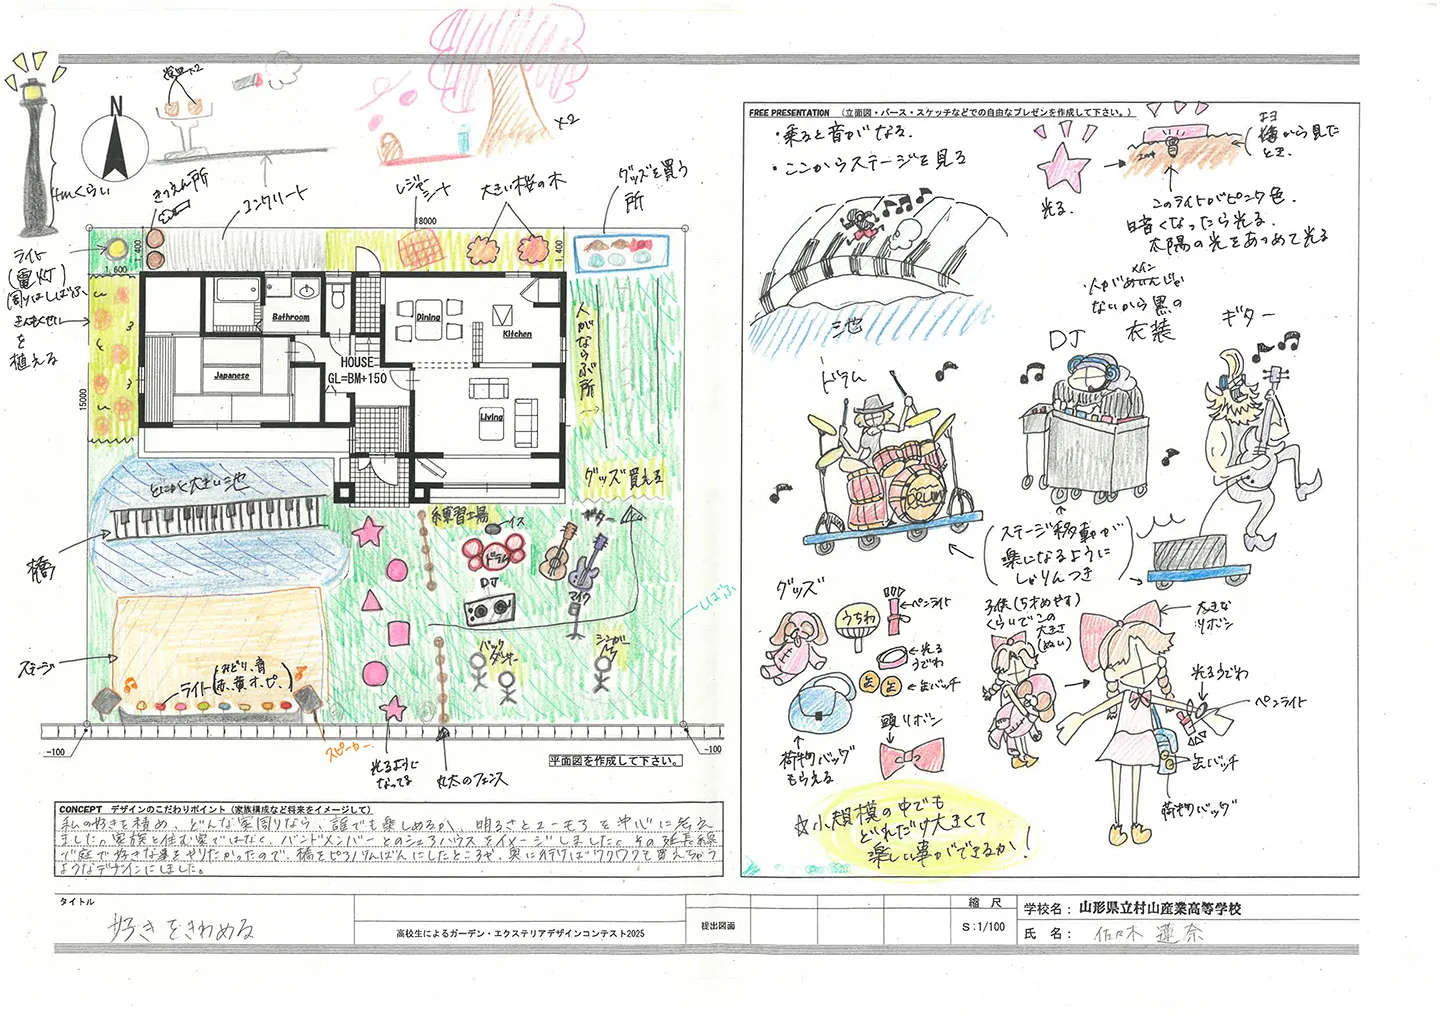 灰皿×2
N
4mくらい
きつえん所
コンクリート
レジャーシート
大きい桜の木
×2
グッズを買う所
18000
1,400
1,400
1,600
15000
ライト
(電灯)
周りはしばふ
きんもくせい
を
植える
Bathroom
Dining
Kitchen
Japanese
HOUSE
GL=BM+150
Living
人がならぶ所
グッズ買える
とにかく大きい池
橋
ステージ
ライト(みどり、青
赤、黄、オ、ピ)
練習場
イス
ギター
ドラム
DJ
マイク
バック
ダンサー
シンガー
しばふ
-100
-100
スピーカー
光るように
なってる
丸太のフェンス
平面図を作成して下さい。
CONCEPT デザインのこだわりポイント（家族構成など将来をイメージして）
私の好きを積め、どんな家周りなら、誰でも楽しめるか、明るさとユーモアを中心に考え
ました。家族と住む家ではなく、バンドメンバーとのシェアハウスをイメージしました。その延長線
で庭で好きな事をやりたかったので、橋をピアノけんばんにしたところや、奥に行けばワクワクも買えちゃう
ようなデザインにしました。
FREE PRESENTATION （立面図・パース・スケッチなどでの自由なプレゼンを作成して下さい。）
・乗ると音がなる.
・ここからステージを見る
池
光る.
横から見た
とき.
このライトがピンク色.
暗くなったら光る.
太陽の光をあつめて光る
・人がメインじゃ
ないから黒の
衣装
ドラム
DRUM
DJ
ギター
ステージ移動が
楽になるように
しゃりんつき
グッズ
うちわ
ペンライト
光る
うでわ
缶バッチ
荷物バッグ
もらえる
頭リボン
子供(5才めやす)
くらいでこの
大きさ
(ぬい)
大きな
リボン
光るうでわ
ペンライト
缶バッチ
荷物バッグ
☆小規模の中でも
どれだけ大きくて
楽しい事ができるか!
タイトル
好きをきわめる
高校生によるガーデン・エクステリアデザインコンテスト2025
提出図面
縮 尺
S:1/100
学校名： 山形県立村山産業高等学校
氏 名： 佐々木 蓮奈